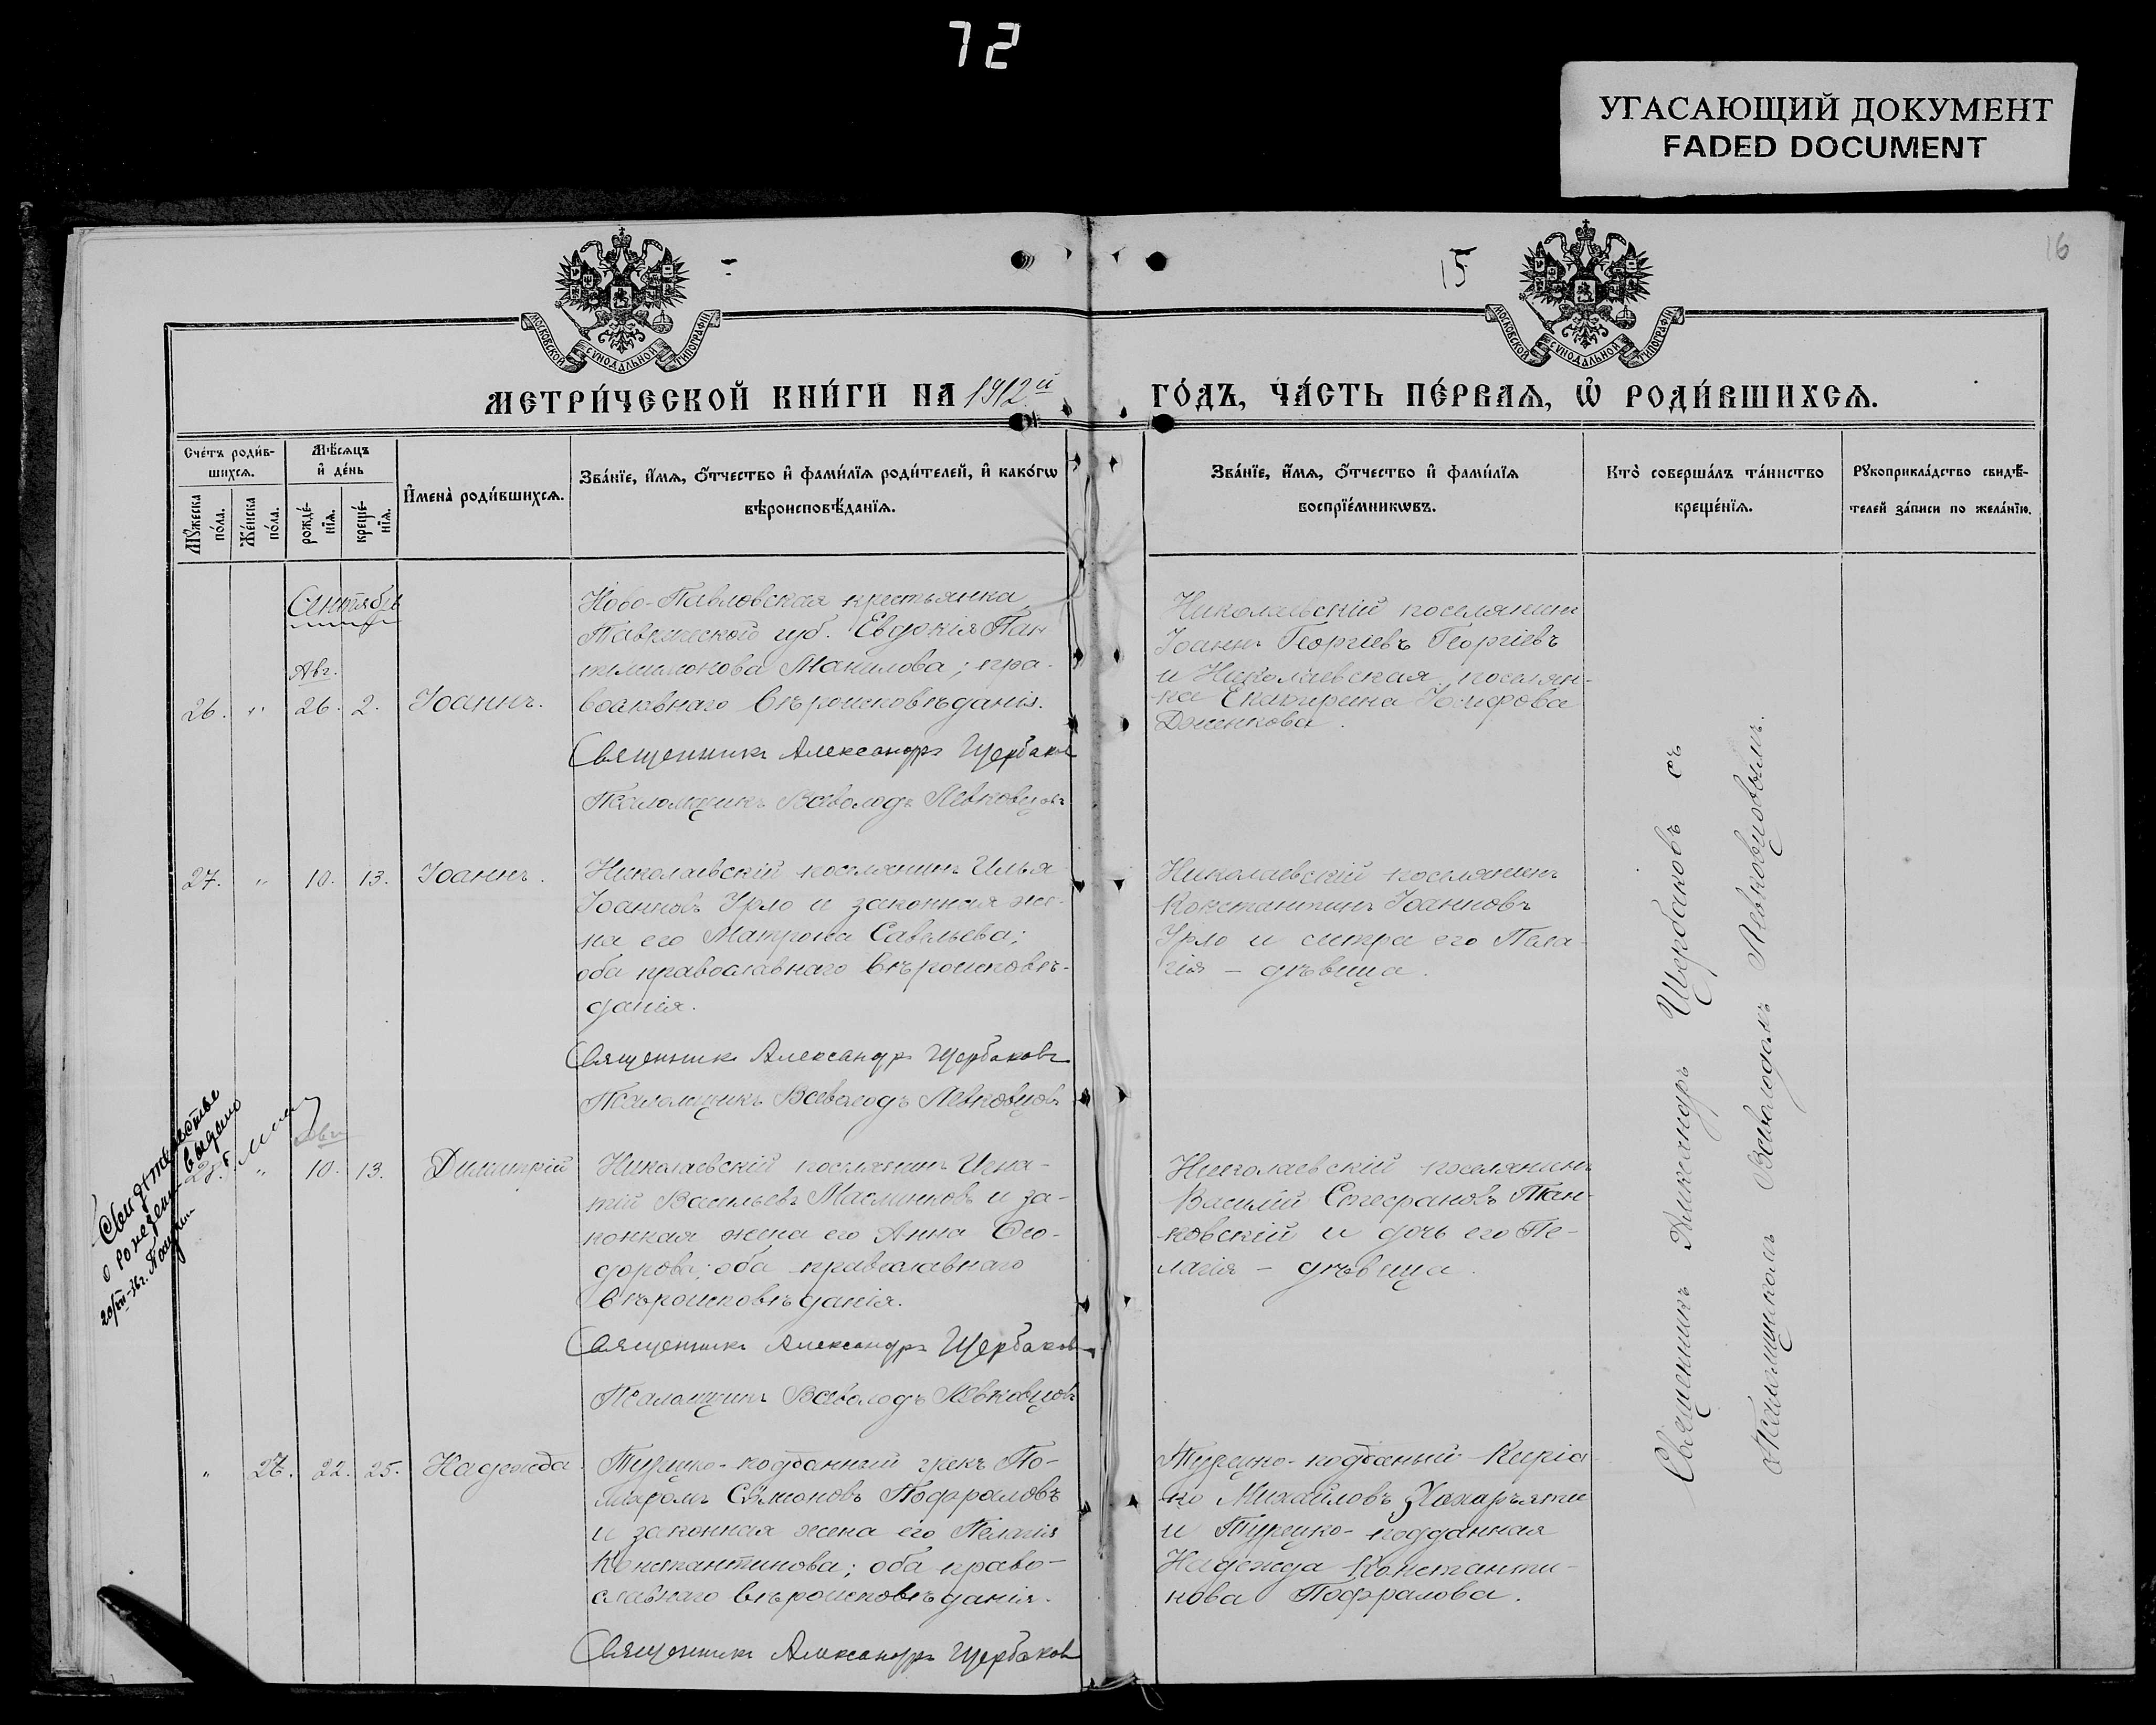 72
УГАСАЮЩИЙ ДОКУМЕНТ
FADED DOCUMENT
16
15
МОСКОВСКОЙ СѴНОДАЛЬНОЙ ТИПОГРАФІИ
МОСКОВСКОЙ СѴНОДАЛЬНОЙ ТИПОГРАФІИ
МЕТРИ́ЧЕСКОЙ КНИ́ГИ НА 1912й ГО́ДЪ, ЧА́СТЬ ПЕ́РВАѦ, Ѡ҆ РОДИ́ВШИХСѦ.
Сче́тъ роди́в-
шихсѧ.
Мꙋ́жеска по́ла.
Же́нска по́ла.
Мѣ́сѧцъ
и҆ де́нь
рожде́-
нїѧ.
креще́-
нїѧ.
И҆мена̀ роди́вшихсѧ.
Зва́нїе, и҆́мѧ, ѻ҆́тчество и҆ фами́лїѧ роди́телей, и҆ како́гѡ
вѣроисповѣ́данїѧ.
Зва́нїе, и҆́мѧ, ѻ҆́тчество и҆ фами́лїѧ
воспрїе́мникѡвъ.
Кто̀ соверша́лъ та́инство
креще́нїѧ.
Рꙋкоприкла́дство свидѣ́-
телей за́писи по жела́нїю.
Сентябрь
Авг.
26. " 26. 2. Іоаннъ.
Ново-Павловская крестьянка
Таврической губ. Евдокія Пан
Манилова; пра-
вославнаго вѣроисповѣданія.
Священникъ Александръ Щербаков
Псаломщикъ Всеволодъ Левковцовъ
Николаевскій поселянинъ
Іоаннъ Георгіевъ Георгіевъ
и Николаевская поселян-
ка Екатерина Іосифова
27. " 10. 13. Іоаннъ.
Николаевскій поселянинъ Илья
Іоанновъ Урло и законная же-
на его Матрона Савельева;
оба православнаго вѣроисповѣ-
данія.
Священникъ Александръ Щербаковъ
Псаломщикъ Всеволодъ Левковцовъ
Николаевскій поселянинъ
Константинъ Іоанновъ
Урло и сестра его Пела-
гія – дѣвица.
Свидѣтельство
о рожденіи выдано
28. " 10. 13. Димитрій
Николаевскій поселянинъ Игна-
тій Васильевъ Маслинковъ и за-
конная жена его Анна Ѳео-
дорова; оба православнаго
вѣроисповѣданія.
Священникъ Александръ Щербаков
Псаломщикъ Всеволодъ Левковцовъ
Николаевскій поселянинъ
Василій Стефановъ Тан-
ковскій и дочь его Пе-
лагія – дѣвица.
" 27. 22. 25. Надежда.
Турецко-подданный грекъ
Симоновъ Пофраловъ
и законная жена его Пелагія
Константинова; оба право-
славнаго вѣроисповѣданія.
Священникъ Александръ Щербаков
Турецко-подданый Киріа-
ко Михайловъ
и Турецко-подданная
Надежда Константи-
нова Пофралова.
Священникъ Александръ Щербаковъ съ
Псаломщикомъ Всеволодомъ Левковцовымъ.